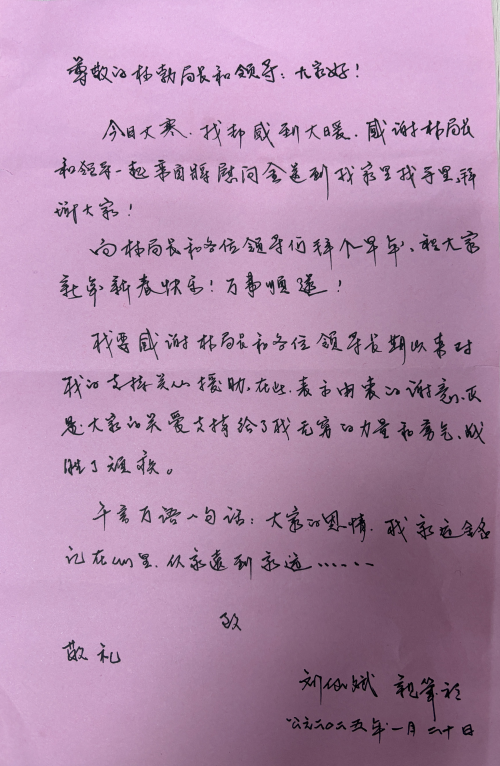 尊敬的林勃局长和领导：大家好！
今日大寒，我却感到大暖，感谢林局长
和领导一起亲自将慰问金送到我家里我手里，拜
谢大家！
向林局长和各位领导们拜个早年，祝大家
新年新春快乐！万事顺遂！
我要感谢林局长和各位领导长期以来对
我的支持关心援助，在此，表示由衷的谢意，正
是大家的关爱支持给了我无穷的力量和勇气，战
胜了顽疾。
千言万语一句话：大家的恩情，我永远会铭
记在心里，从永远到永远……
致
敬礼
刘 斌 亲笔
公元二〇二五年一月二十日